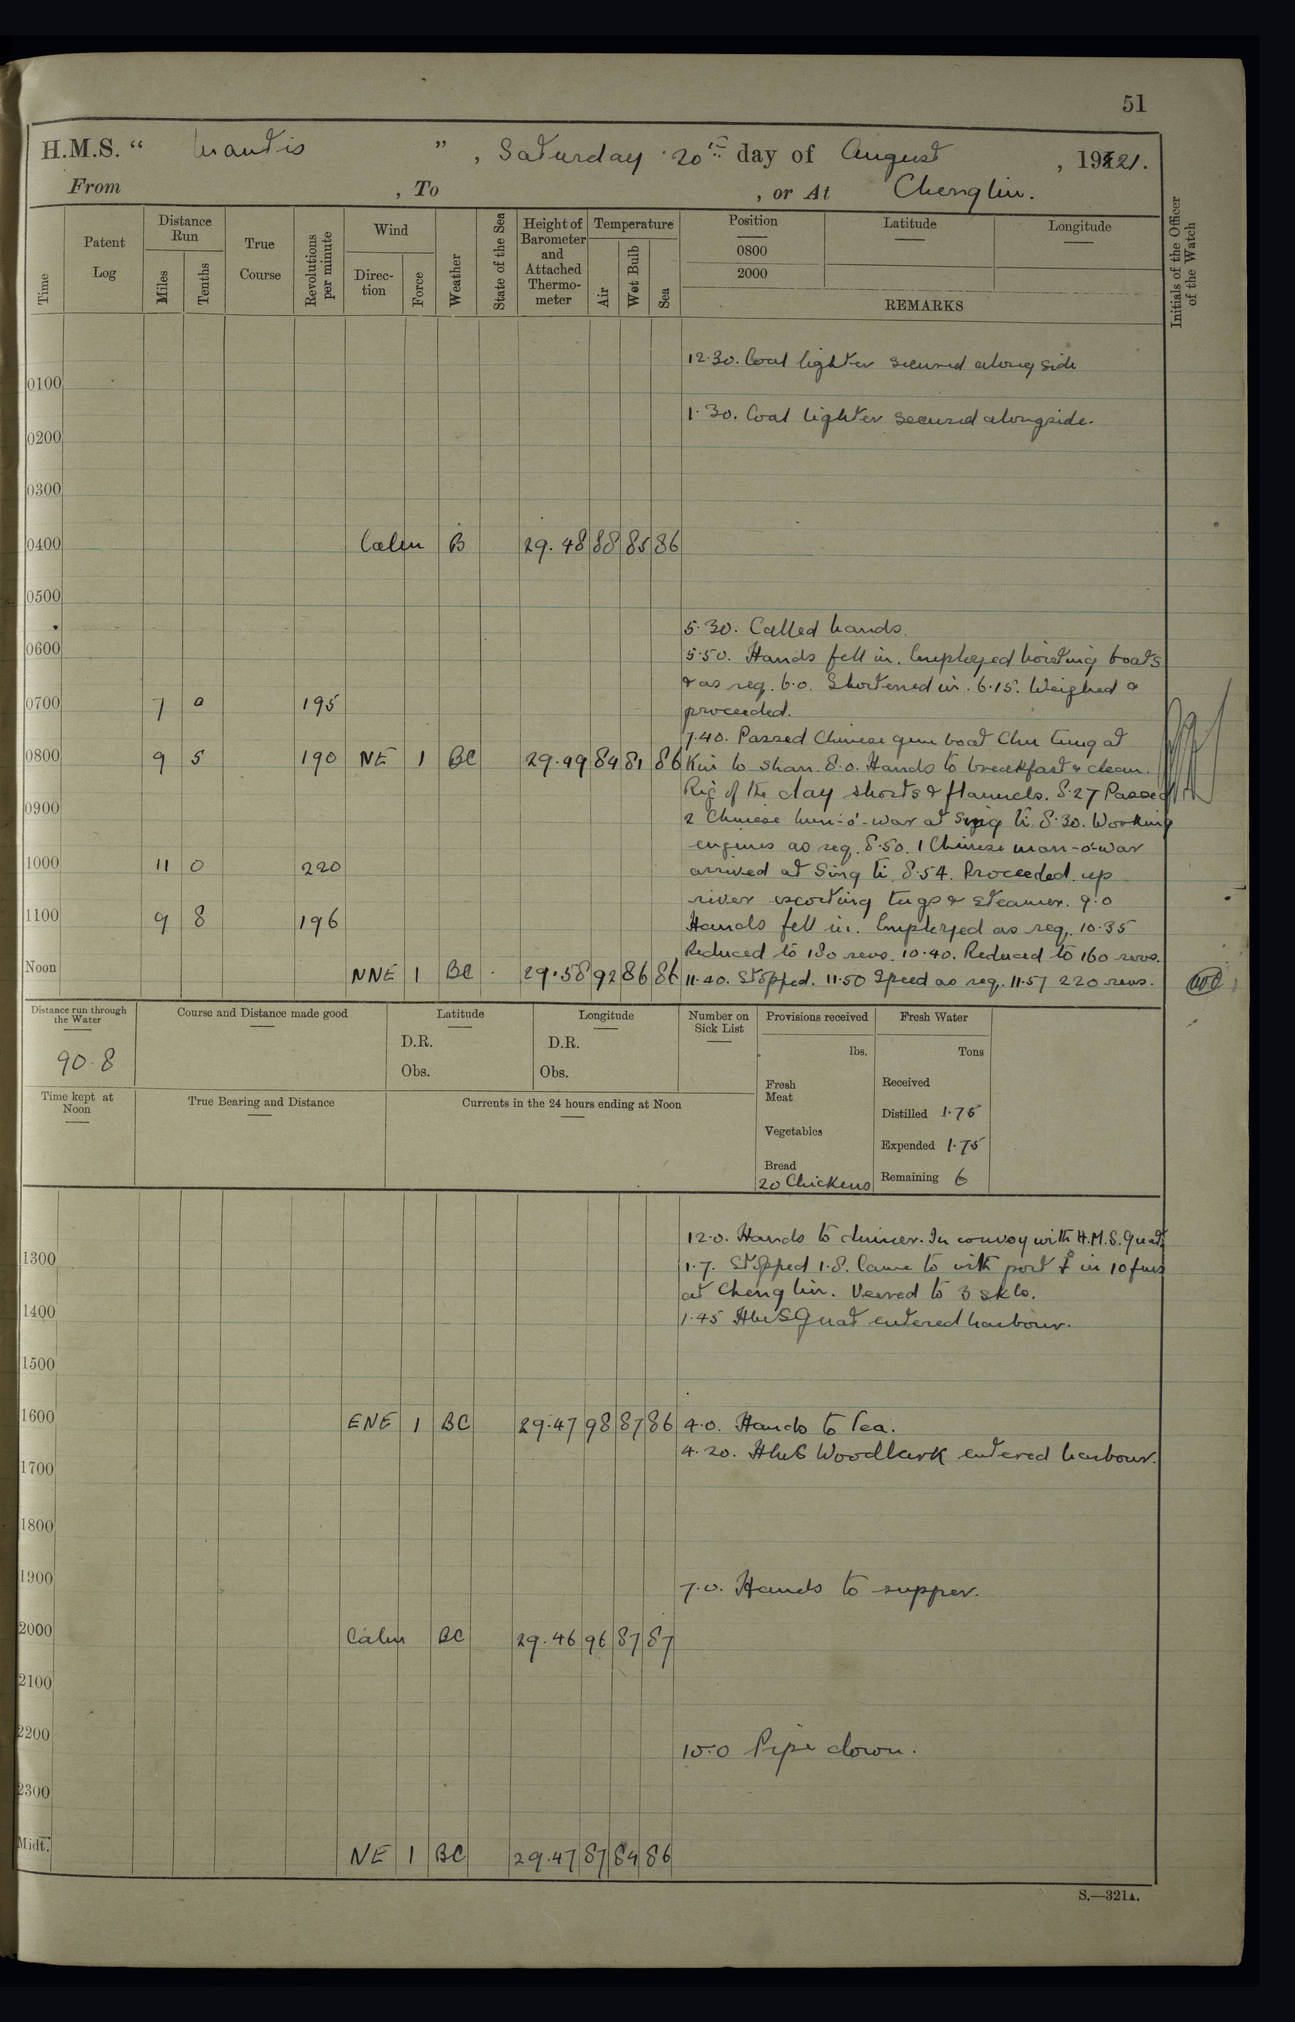 51
H.M.S. “ Mantis ” , Saturday 20th day of August , 1921.
From , To , or At Chenglin.
Time
Patent Log
Distance Run
Miles
Tenths
True Course
Revolutions per minute
Wind
Direc-tion
Force
Weather
State of the Sea
Height of Barometer and Attached Thermo-meter
Temperature
Air
Wet Bulb
Sea
Position
0800
2000
Latitude
Longitude
REMARKS
Initials of the Officer of the Watch
12.30. Coal lighter secured alongside
0100
1.30. Coal lighter secured alongside.
0200
0300
0400 Calm B 29.48 88 85 86
0500
5.30. Called hands.
0600
5.50. Hands fell in. Employed hoisting boats
& as req. 6.0. Shortened in. 6.15. Weighed &
0700 7 0 195
proceeded.
7.40. Passed Chinese gun boat Chu tung at
0800 9 5 190 NE 1 BC 29.49 84 81 86
Kin to shan. 8.0. Hands to breakfast & clean.
Rig of the day shorts & flannels. 8.27 Passed
0900
2 Chinese men-o'-war at Sing ti. 8.30. Working
engines as req. 8.50. 1 Chinese man-o'-war
1000 11 0 220
arrived at Sing ti. 8.54. Proceeded up
river escorting tugs & steamer. 9.0
1100 9 8 196
Hands fell in. Employed as req. 10.35
Reduced to 180 revs. 10.40. Reduced to 160 revs.
Noon NNE 1 BC 29.58 92 86 86
11.40. Stopped. 11.50 Speed as req. 11.57 220 revs.
Distance run through the Water
90.8
Course and Distance made good
Latitude
D.R.
Obs.
Longitude
D.R.
Obs.
Number on Sick List
Provisions received
lbs.
Fresh Meat
Vegetables
Bread
20 Chickens
Fresh Water
Tons
Received
Distilled 1.75
Expended 1.75
Remaining 6
Time kept at Noon
True Bearing and Distance
Currents in the 24 hours ending at Noon
12.0. Hands to dinner. In convoy with H.M.S. Gnat.
1300
1.7. Stopped 1.8. Came to with port in 10 fms
at Cheng lin. Veered to 3 skls.
1400
1.45 HMS Gnat entered harbour.
1500
1600 ENE 1 BC 29.47 98 87 86 4.0. Hands to Tea.
4.20. HMS Woodlark entered harbour.
1700
1800
1900
7.0. Hands to supper.
2000 Calm BC 29.46 96 87 87
2100
2200
10.0 Pipe down.
2300
Midt. NE 1 BC 29.47 87 84 86
S.—321A.